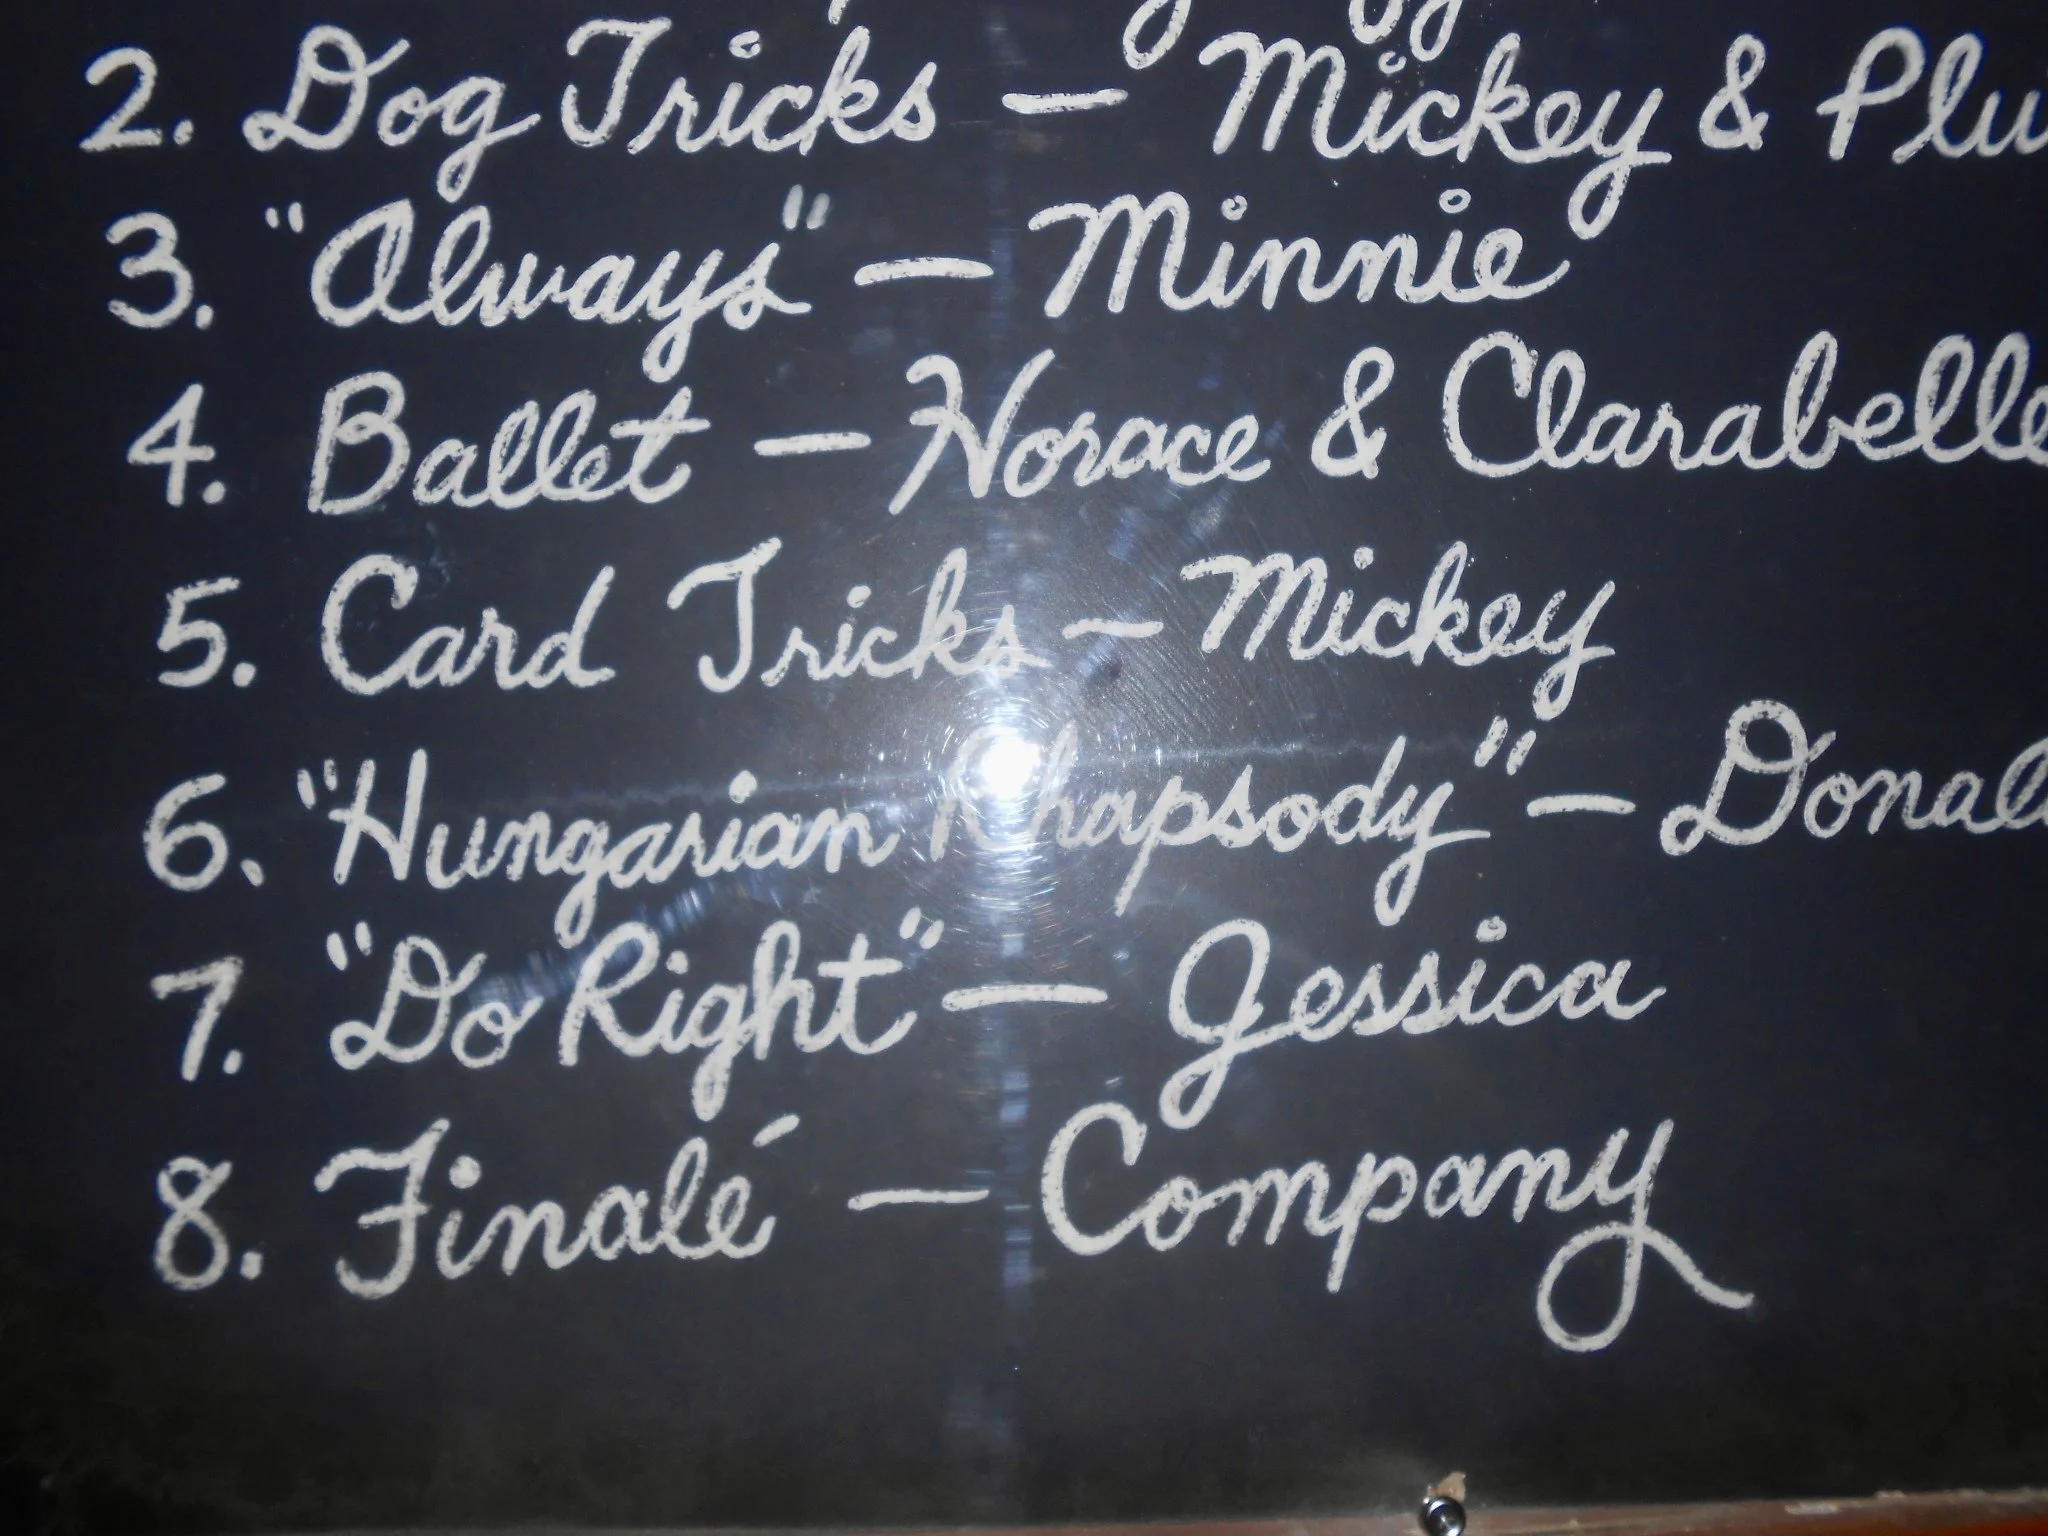 2. Dog Tricks — Mickey & Plu
3. "Always" — Minnie
4. Ballet — Horace & Clarabelle
5. Card Tricks — Mickey
6. "Hungarian Rhapsody" — Donal
7. "Do Right" — Jessica
8. Finalé — Company